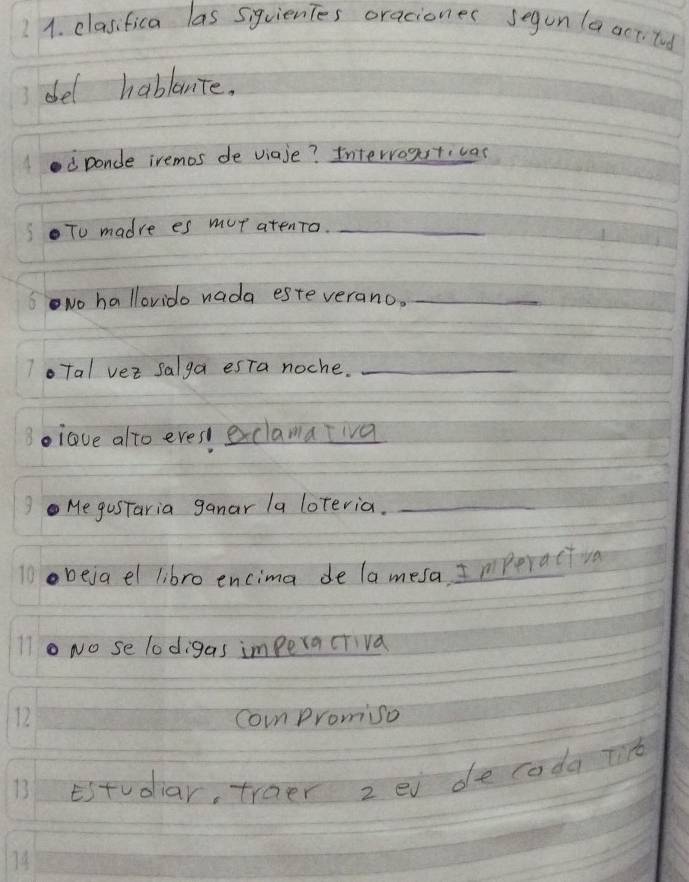 1. clasifica las siguientes oraciones segun la actitud
del hablante.
• ¿Donde iremos de viaje? Interrogativas
• Tu madre es muy atenta.
• No ha llovido nada este verano.
• Tal vez salga esta noche.
• ¡Que alto eres! exclamativa
• Me gustaria ganar la loteria.
• Deja el libro encima de la mesa. Imperactiva
• No se lo digas imperactiva
compromiso
Estudiar, traer 2 ej de cada